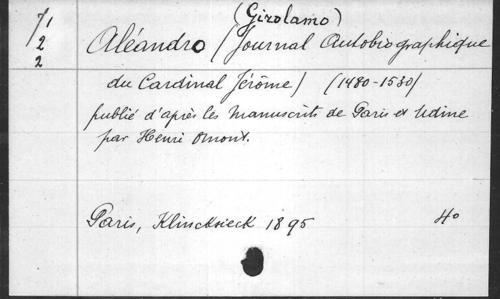 (Girolamo)
7/1
2
2
Aléandro (Journal Autobiographique
du Cardinal Jérôme) (1480-1530)
publié d'après les manuscrits de Paris et Udine
par Henri Omont.
Paris, Klincksieck 1895
4o